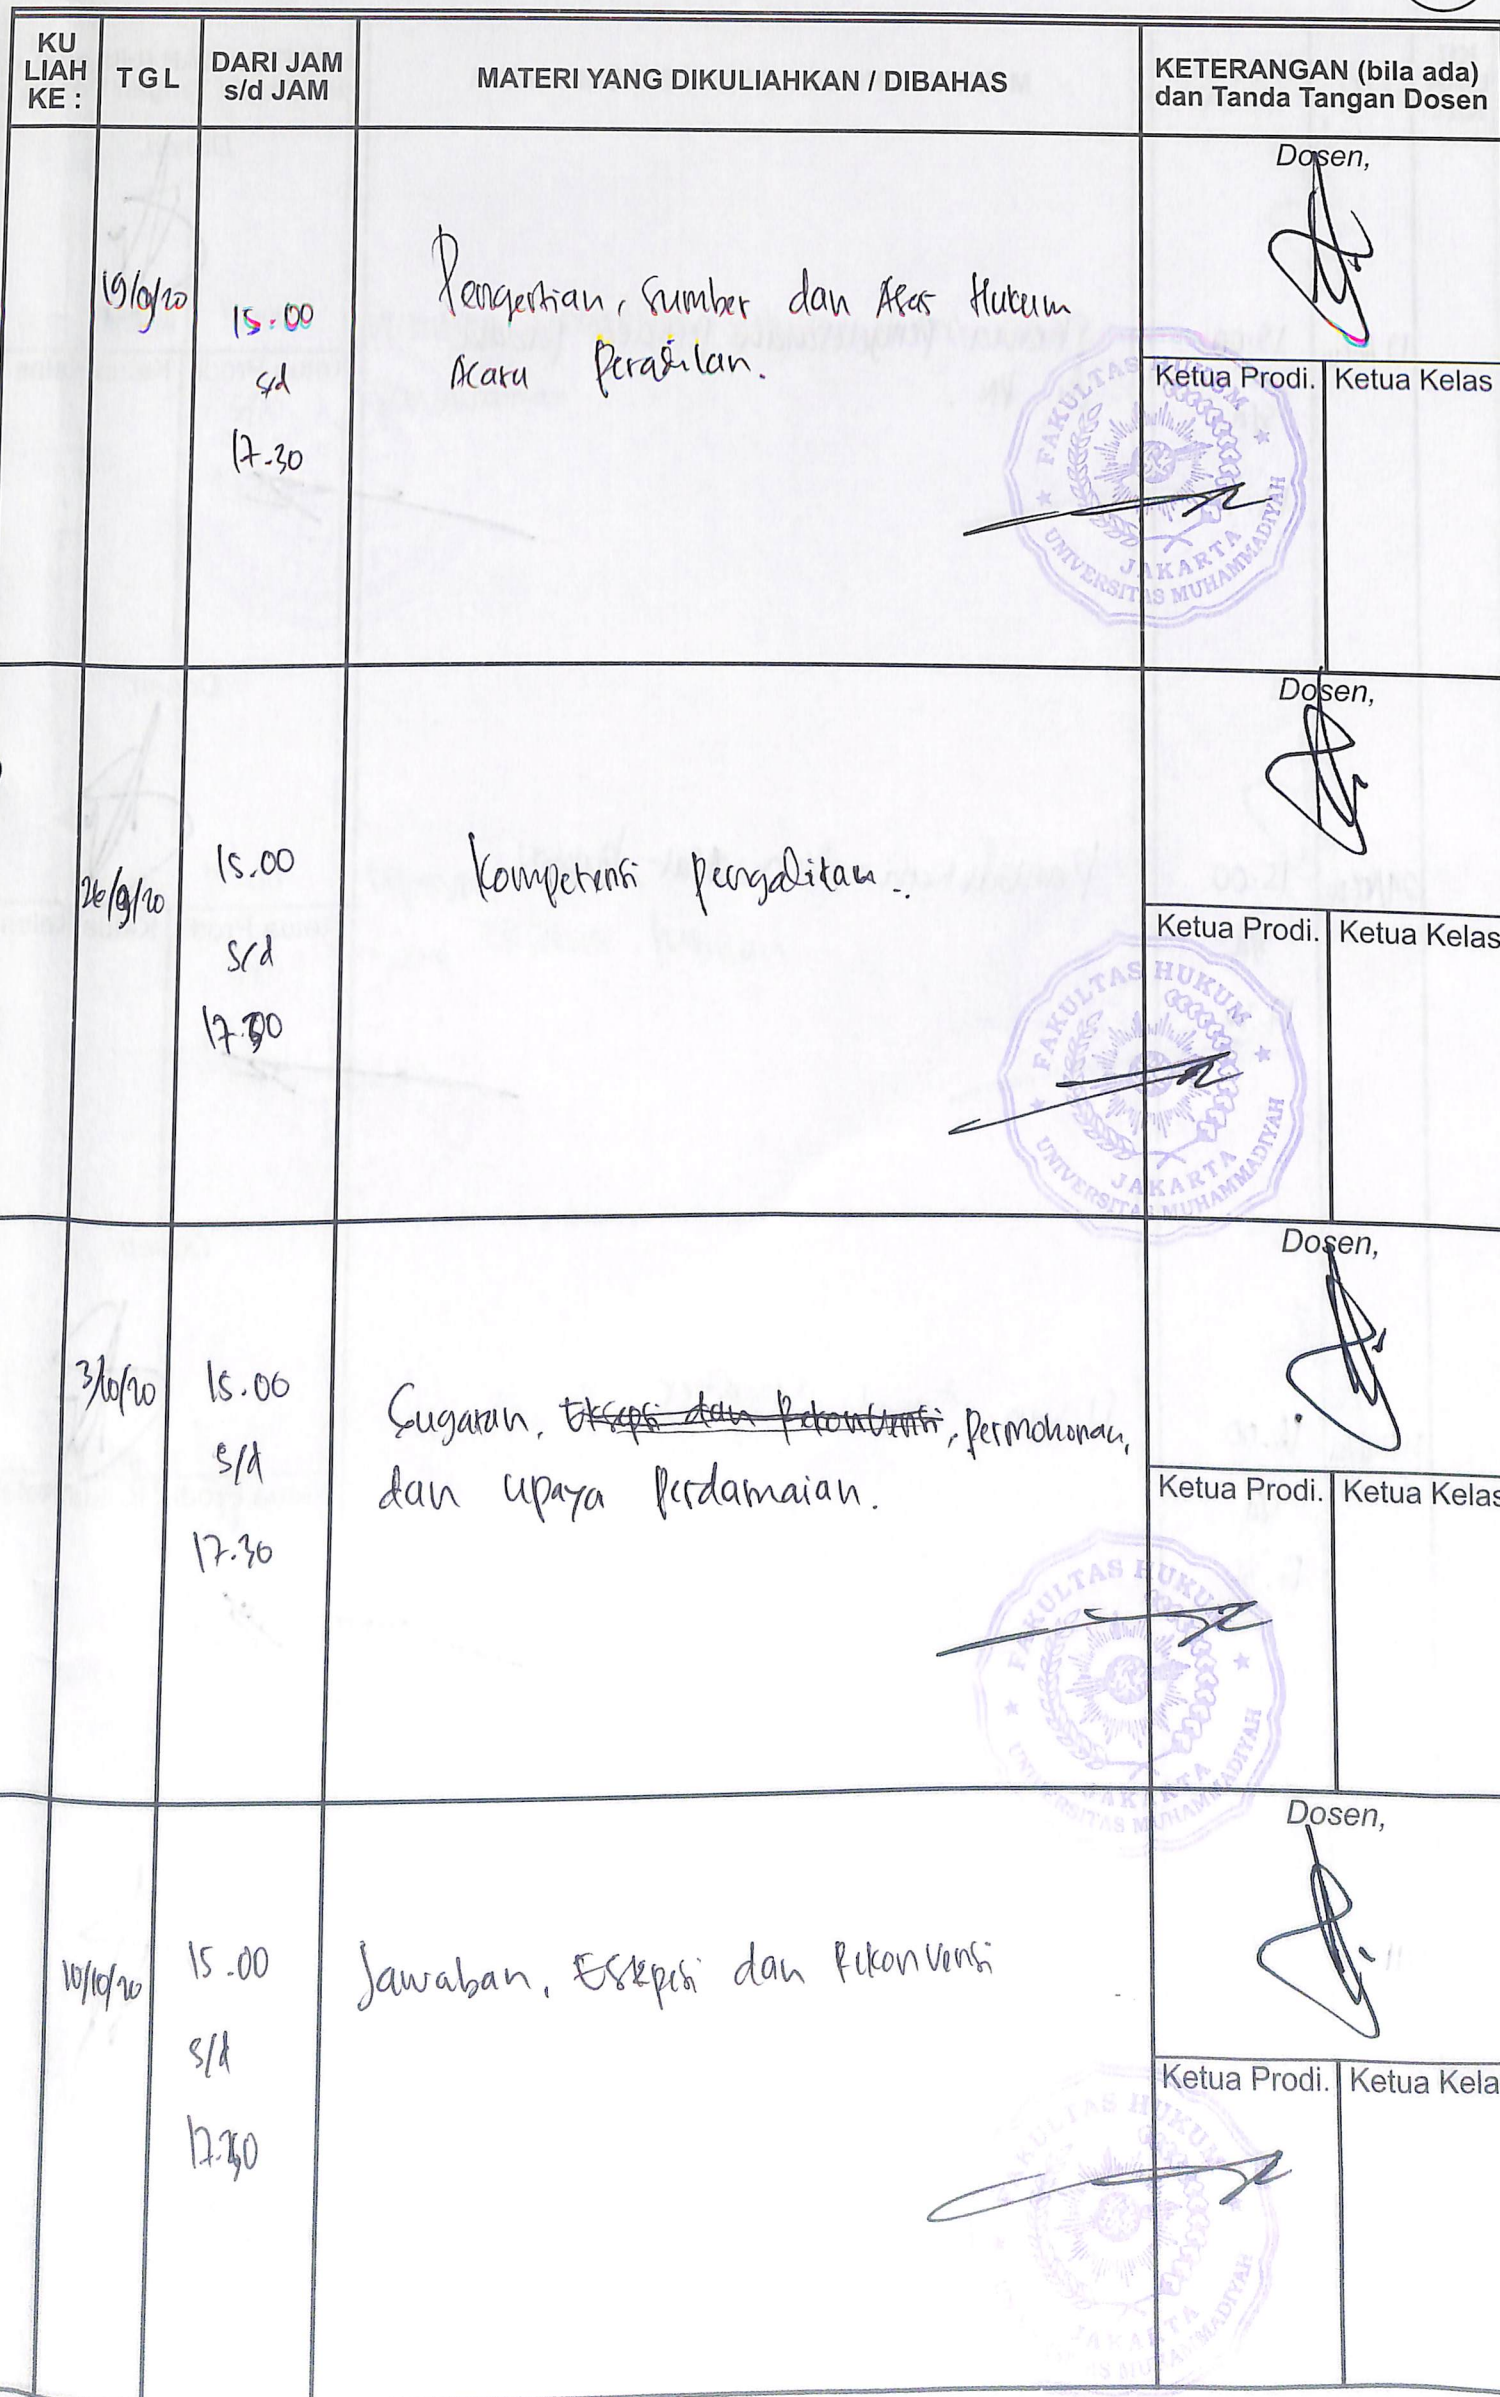 KU
LIAH
KE :
TGL
DARI JAM
s/d JAM
MATERI YANG DIKULIAHKAN / DIBAHAS
KETERANGAN (bila ada)
dan Tanda Tangan Dosen
19/9/20
15.00
s/d
17.30
Pengertian, Sumber dan Asas Hukum
Acara Peradilan.
Dosen,
Ketua Prodi. Ketua Kelas
FAKULTAS HUKUM
UNIVERSITAS MUHAMMADIYAH
JAKARTA
26/9/20
15.00
s/d
17.30
Kompetensi pengadilan.
Dosen,
Ketua Prodi. Ketua Kelas
FAKULTAS HUKUM
UNIVERSITAS MUHAMMADIYAH
JAKARTA
3/10/20
15.00
s/d
17.30
Gugatan, Eksepsi dan Rekonvensi, Permohonan,
dan upaya Perdamaian.
Dosen,
Ketua Prodi. Ketua Kelas
FAKULTAS HUKUM
UNIVERSITAS MUHAMMADIYAH
JAKARTA
10/10/20
15.00
s/d
17.30
Jawaban, Eskpesi dan Rekonvensi
Dosen,
Ketua Prodi. Ketua Kela
FAKULTAS HUKUM
MUHAMMADIYAH
JAKARTA